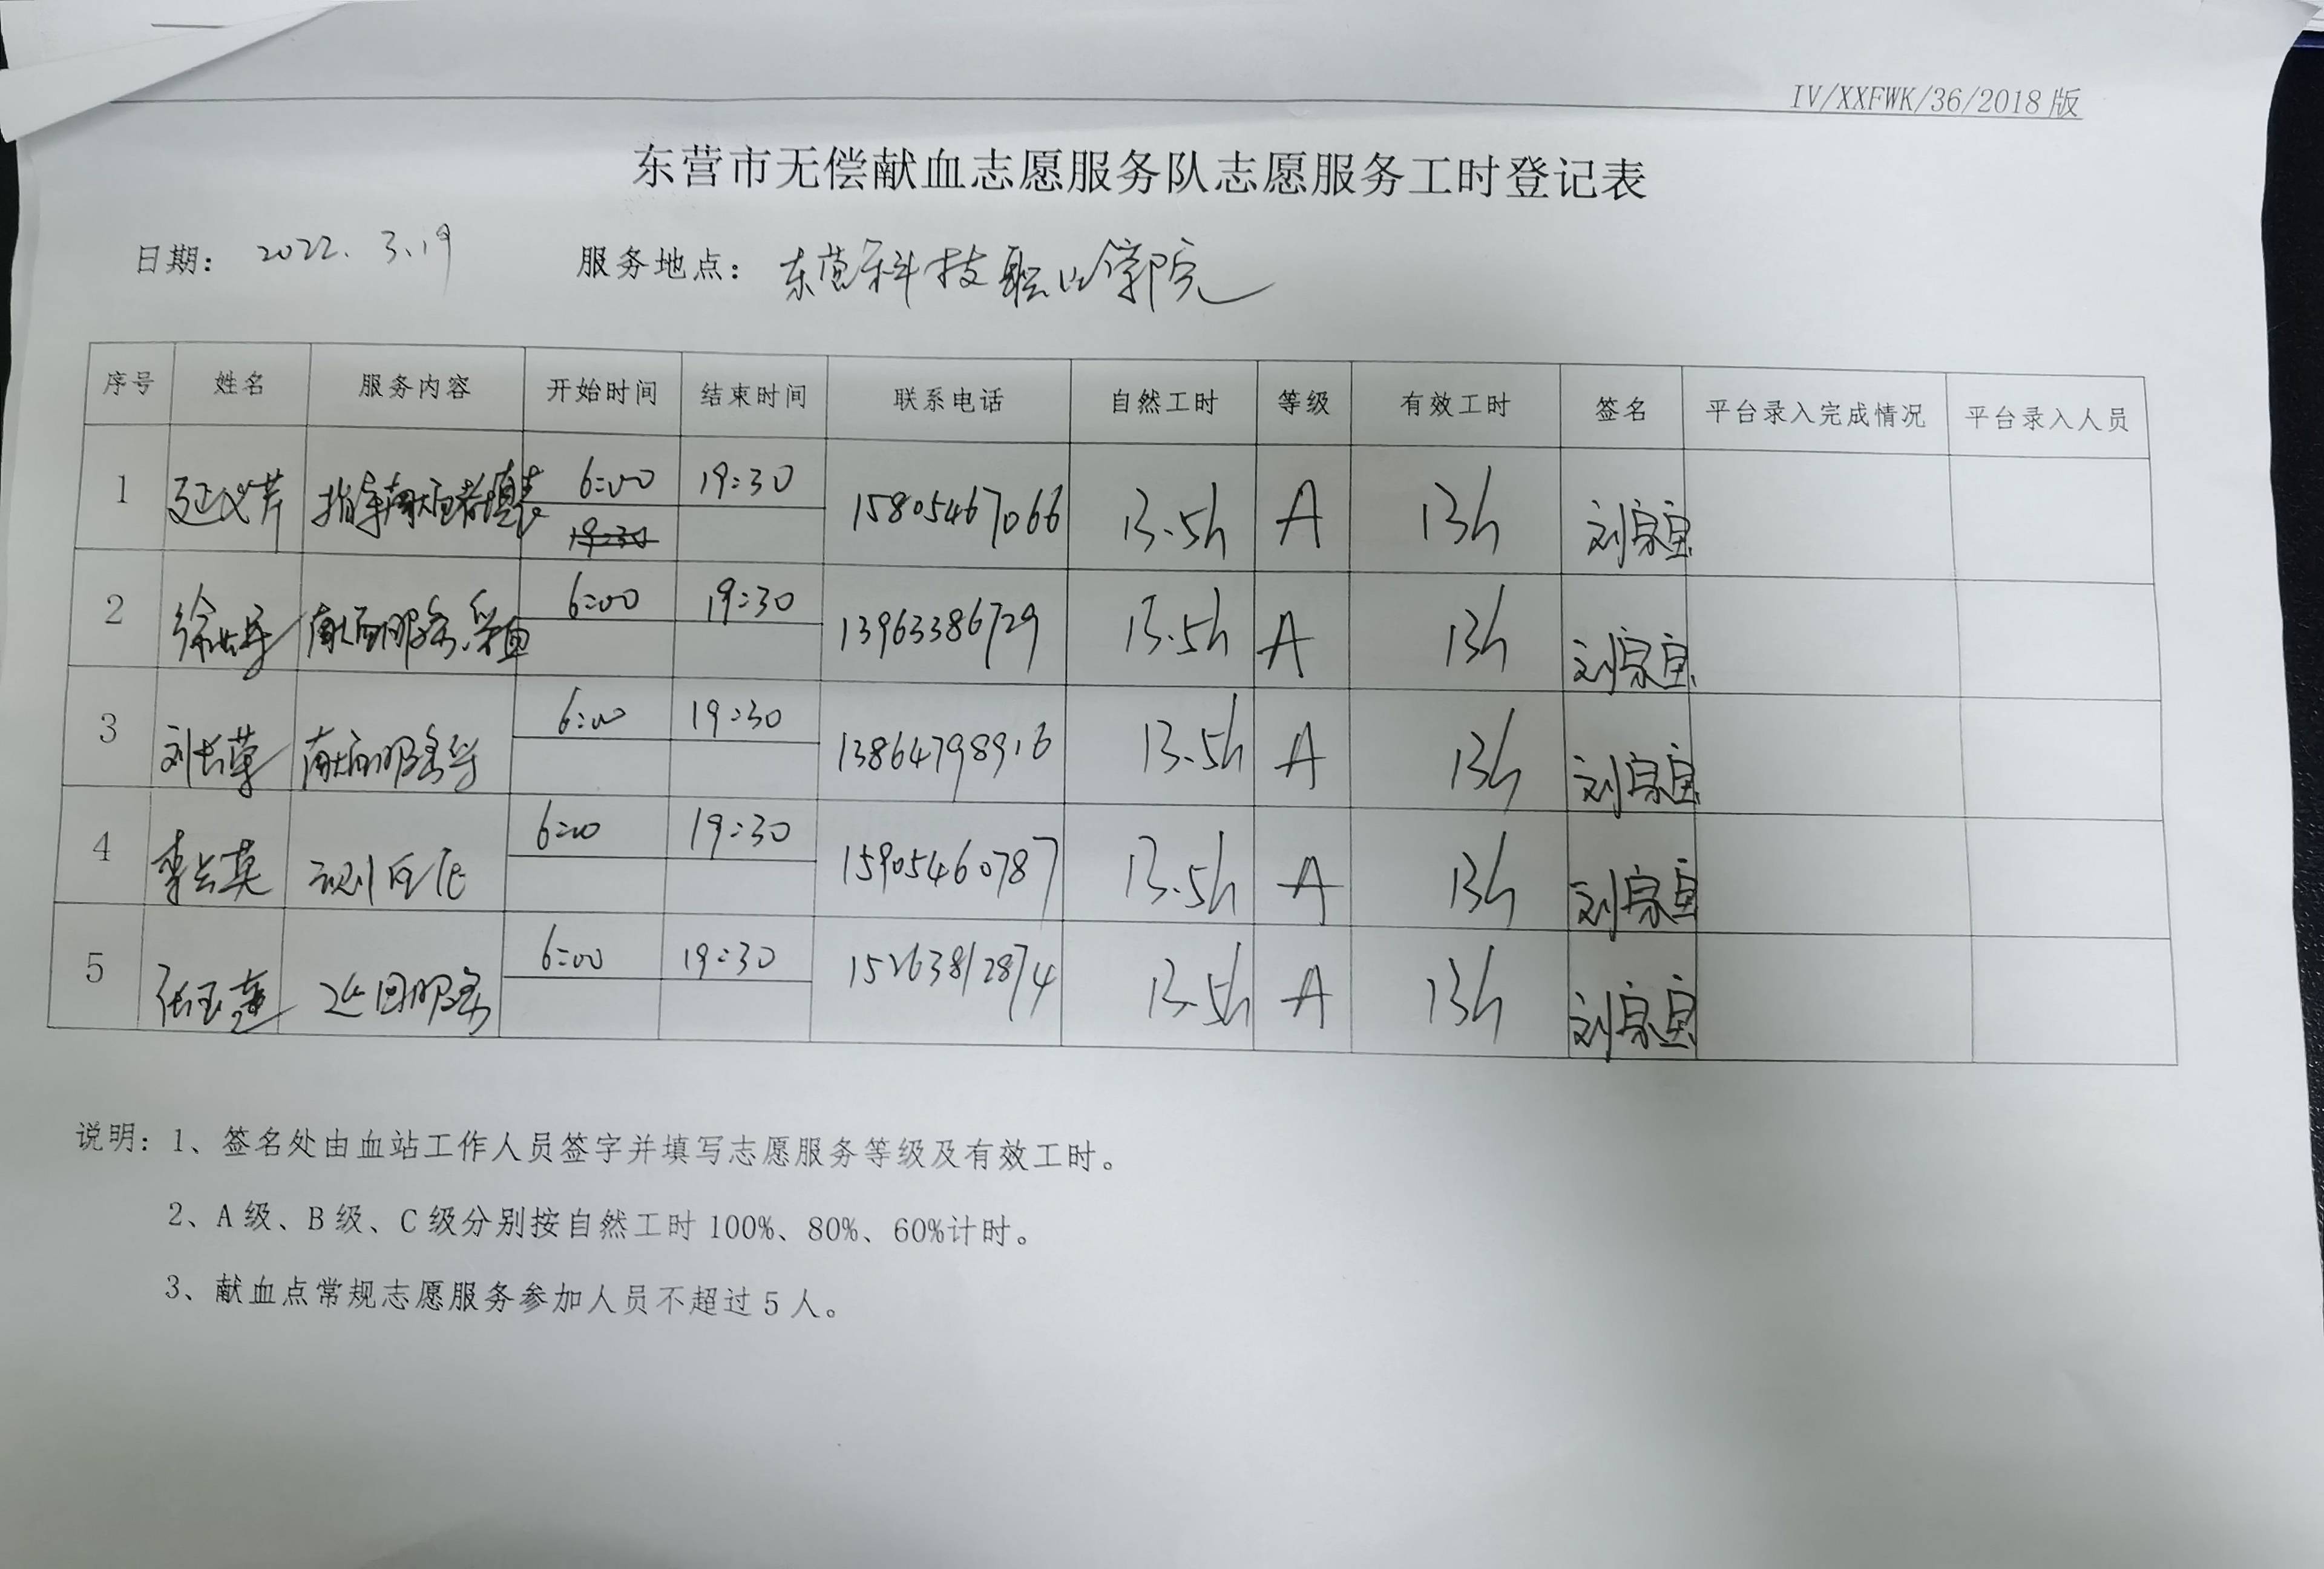 IV/XXFWK/36/2018版
东营市无偿献血志愿服务队志愿服务工时登记表
日期： 2022.3.19 服务地点： 东营科技职业学院
序号 姓名 服务内容 开始时间 结束时间 联系电话 自然工时 等级 有效工时 签名 平台录入完成情况 平台录入人员
1 延 芹 指导献血者填表 6:00 19:30 15805467066 13.5h A 13h 刘宗宝
19:30
2 徐 献血服务 6:00 19:30 13963386729 13.5h A 13h 刘宗宝
3 刘长 献血服务 6:00 19:30 13864798916 13.5h A 13h 刘宗宝
4 李云英 测血压 6:00 19:30 15905460787 13.5h A 13h 刘宗宝
5 张玉莲 巡回服务 6:00 19:30 15263812874 13.5h A 13h 刘宗宝
说明：1、签名处由血站工作人员签字并填写志愿服务等级及有效工时。
2、A级、B级、C级分别按自然工时100%、80%、60%计时。
3、献血点常规志愿服务参加人员不超过5人。